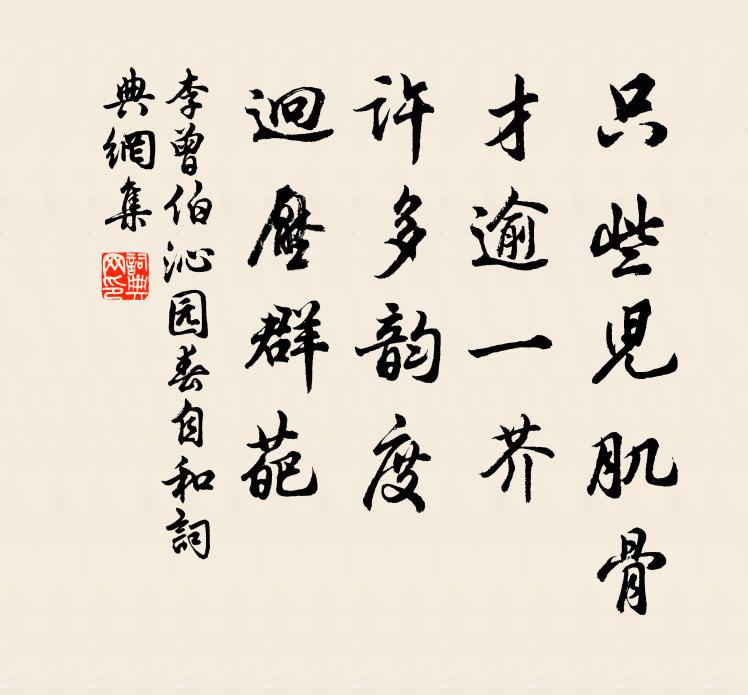 只些児肌骨
才逾一芥
许多韵度
迥壓群葩
李曾伯沁园春自和詞
典網集
詞典網印